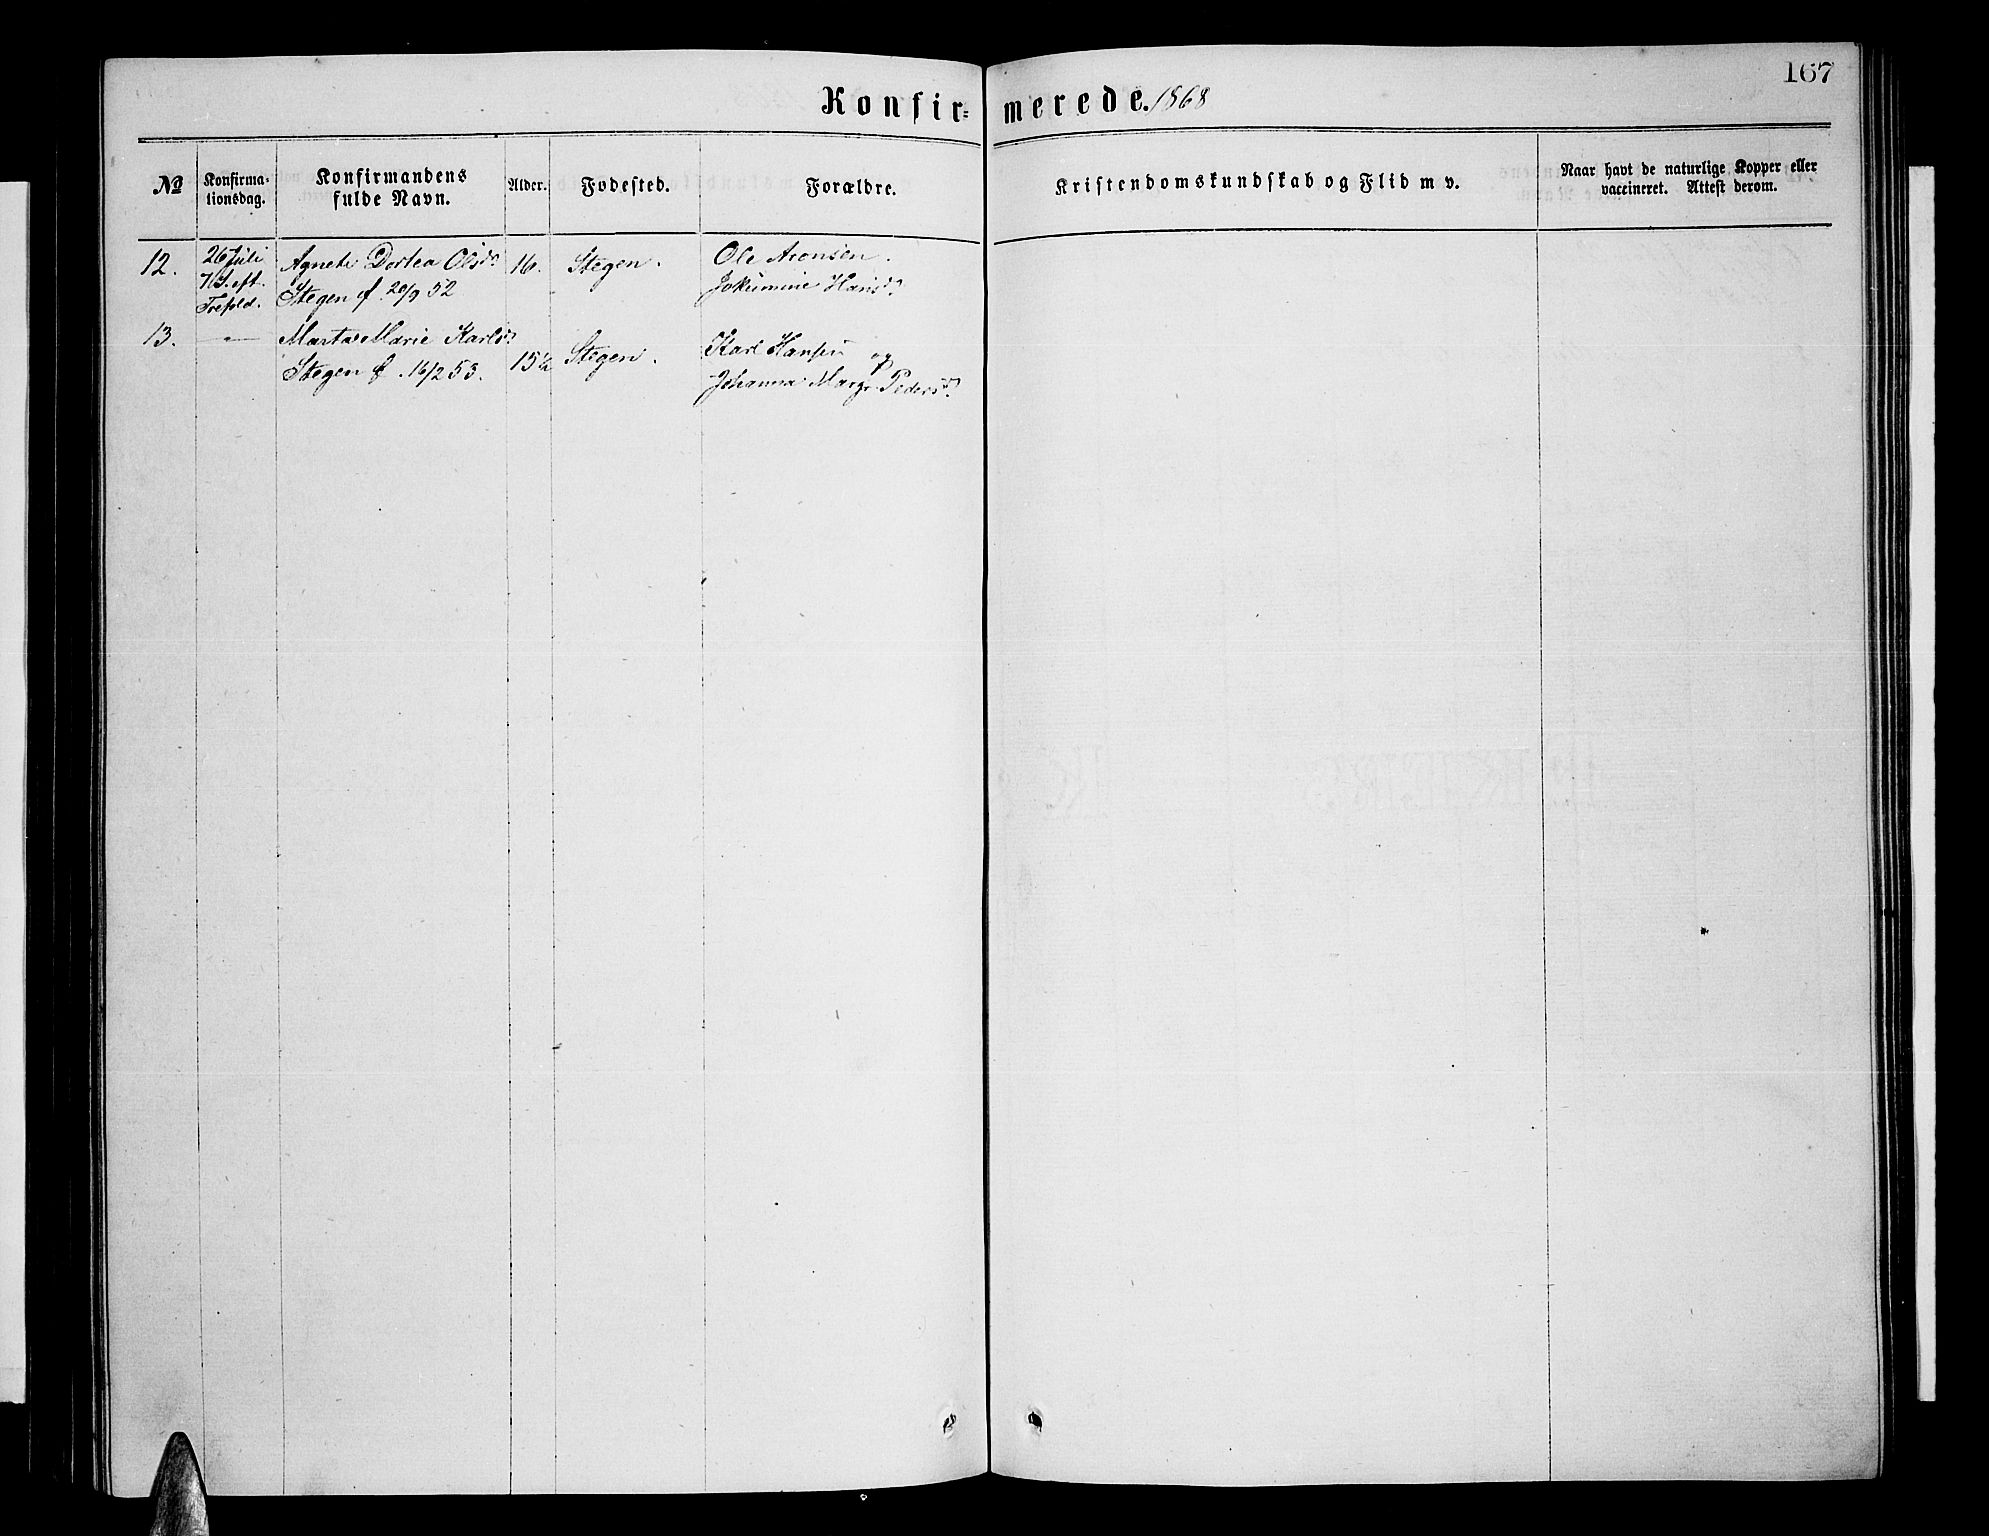 167
Konfirmerede. 1868
No
Konfirma-
tionsdag.
Konfirmandens
fulde Navn.
Alder.
Fødested.
Forældre.
Kristendomskundskab og Flid m v.
Naar havt de naturlige Kopper eller
vaccineret. Attest derom.
12.
26 Juli
7 S. eft.
Trefold.
Agnete Dortea Olsdr
Stegen f. 20/9 52
16.
Stegen.
Ole Aronsen.
Jokumine Hansdr
13.
—"—
Marta Marie Karlsdr
Stegen f. 16/2 53.
15½
Stegen.
Karl Hansen og
Johanna Margr. Pedersdr.